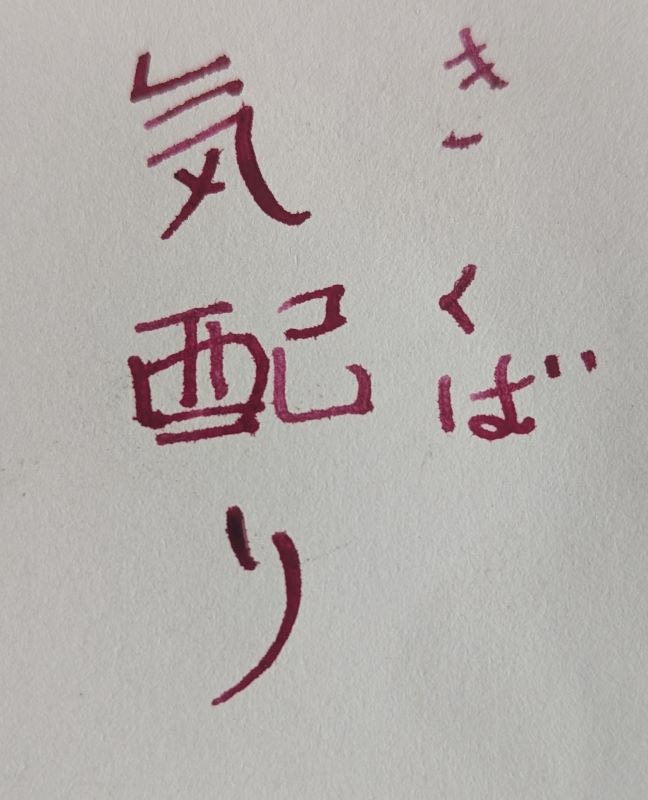 気配り
きくば